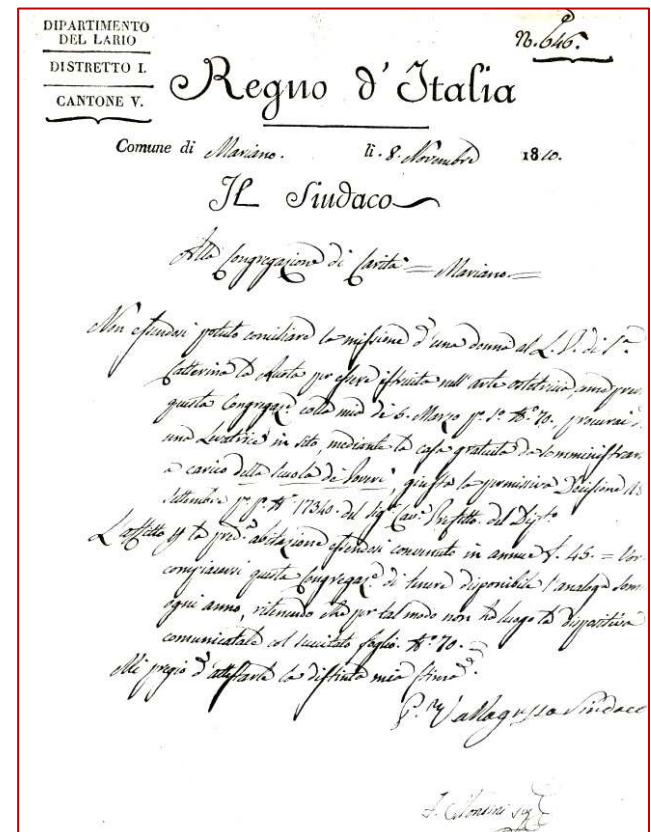 DIPARTIMENTO
DEL LARIO
DISTRETTO I.
CANTONE V.
N. 646.
Regno d'Italia
Comune di Mariano. li. 8. Novembre 1810.
Il Sindaco
Alla Congregazione di Carità = Mariano =
Non essendosi potuto conciliare la missione d'una donna al L. P. di S.ª
Catterina la Ruota per essere istruita nell'arte ostetricia,
questa Congregaz.e colla mia di 6. Marzo p.º p.º N.º 70. procurai
una Levatrice in sito, mediante la casa gratuita da somministrar
a carico della Scuola de Poveri, giusta la permissiva Decisione
Settembre p.º p.º N.º 17340. del Sig.r Cav.e Prefetto del Dip.to
L'affitto p la pred.ª abitazione essendosi convenuto in annue £. 45. =
compiacersi questa Congregaz.e di tenere disponibile l'analoga som
ogni anno, ritenendo che per tal modo non ha luogo la dispositiva
comunicatale col succitato foglio N.º 70.
Mi pregio d'attestarle la distinta mia stima.
Vallagussa Sindaco